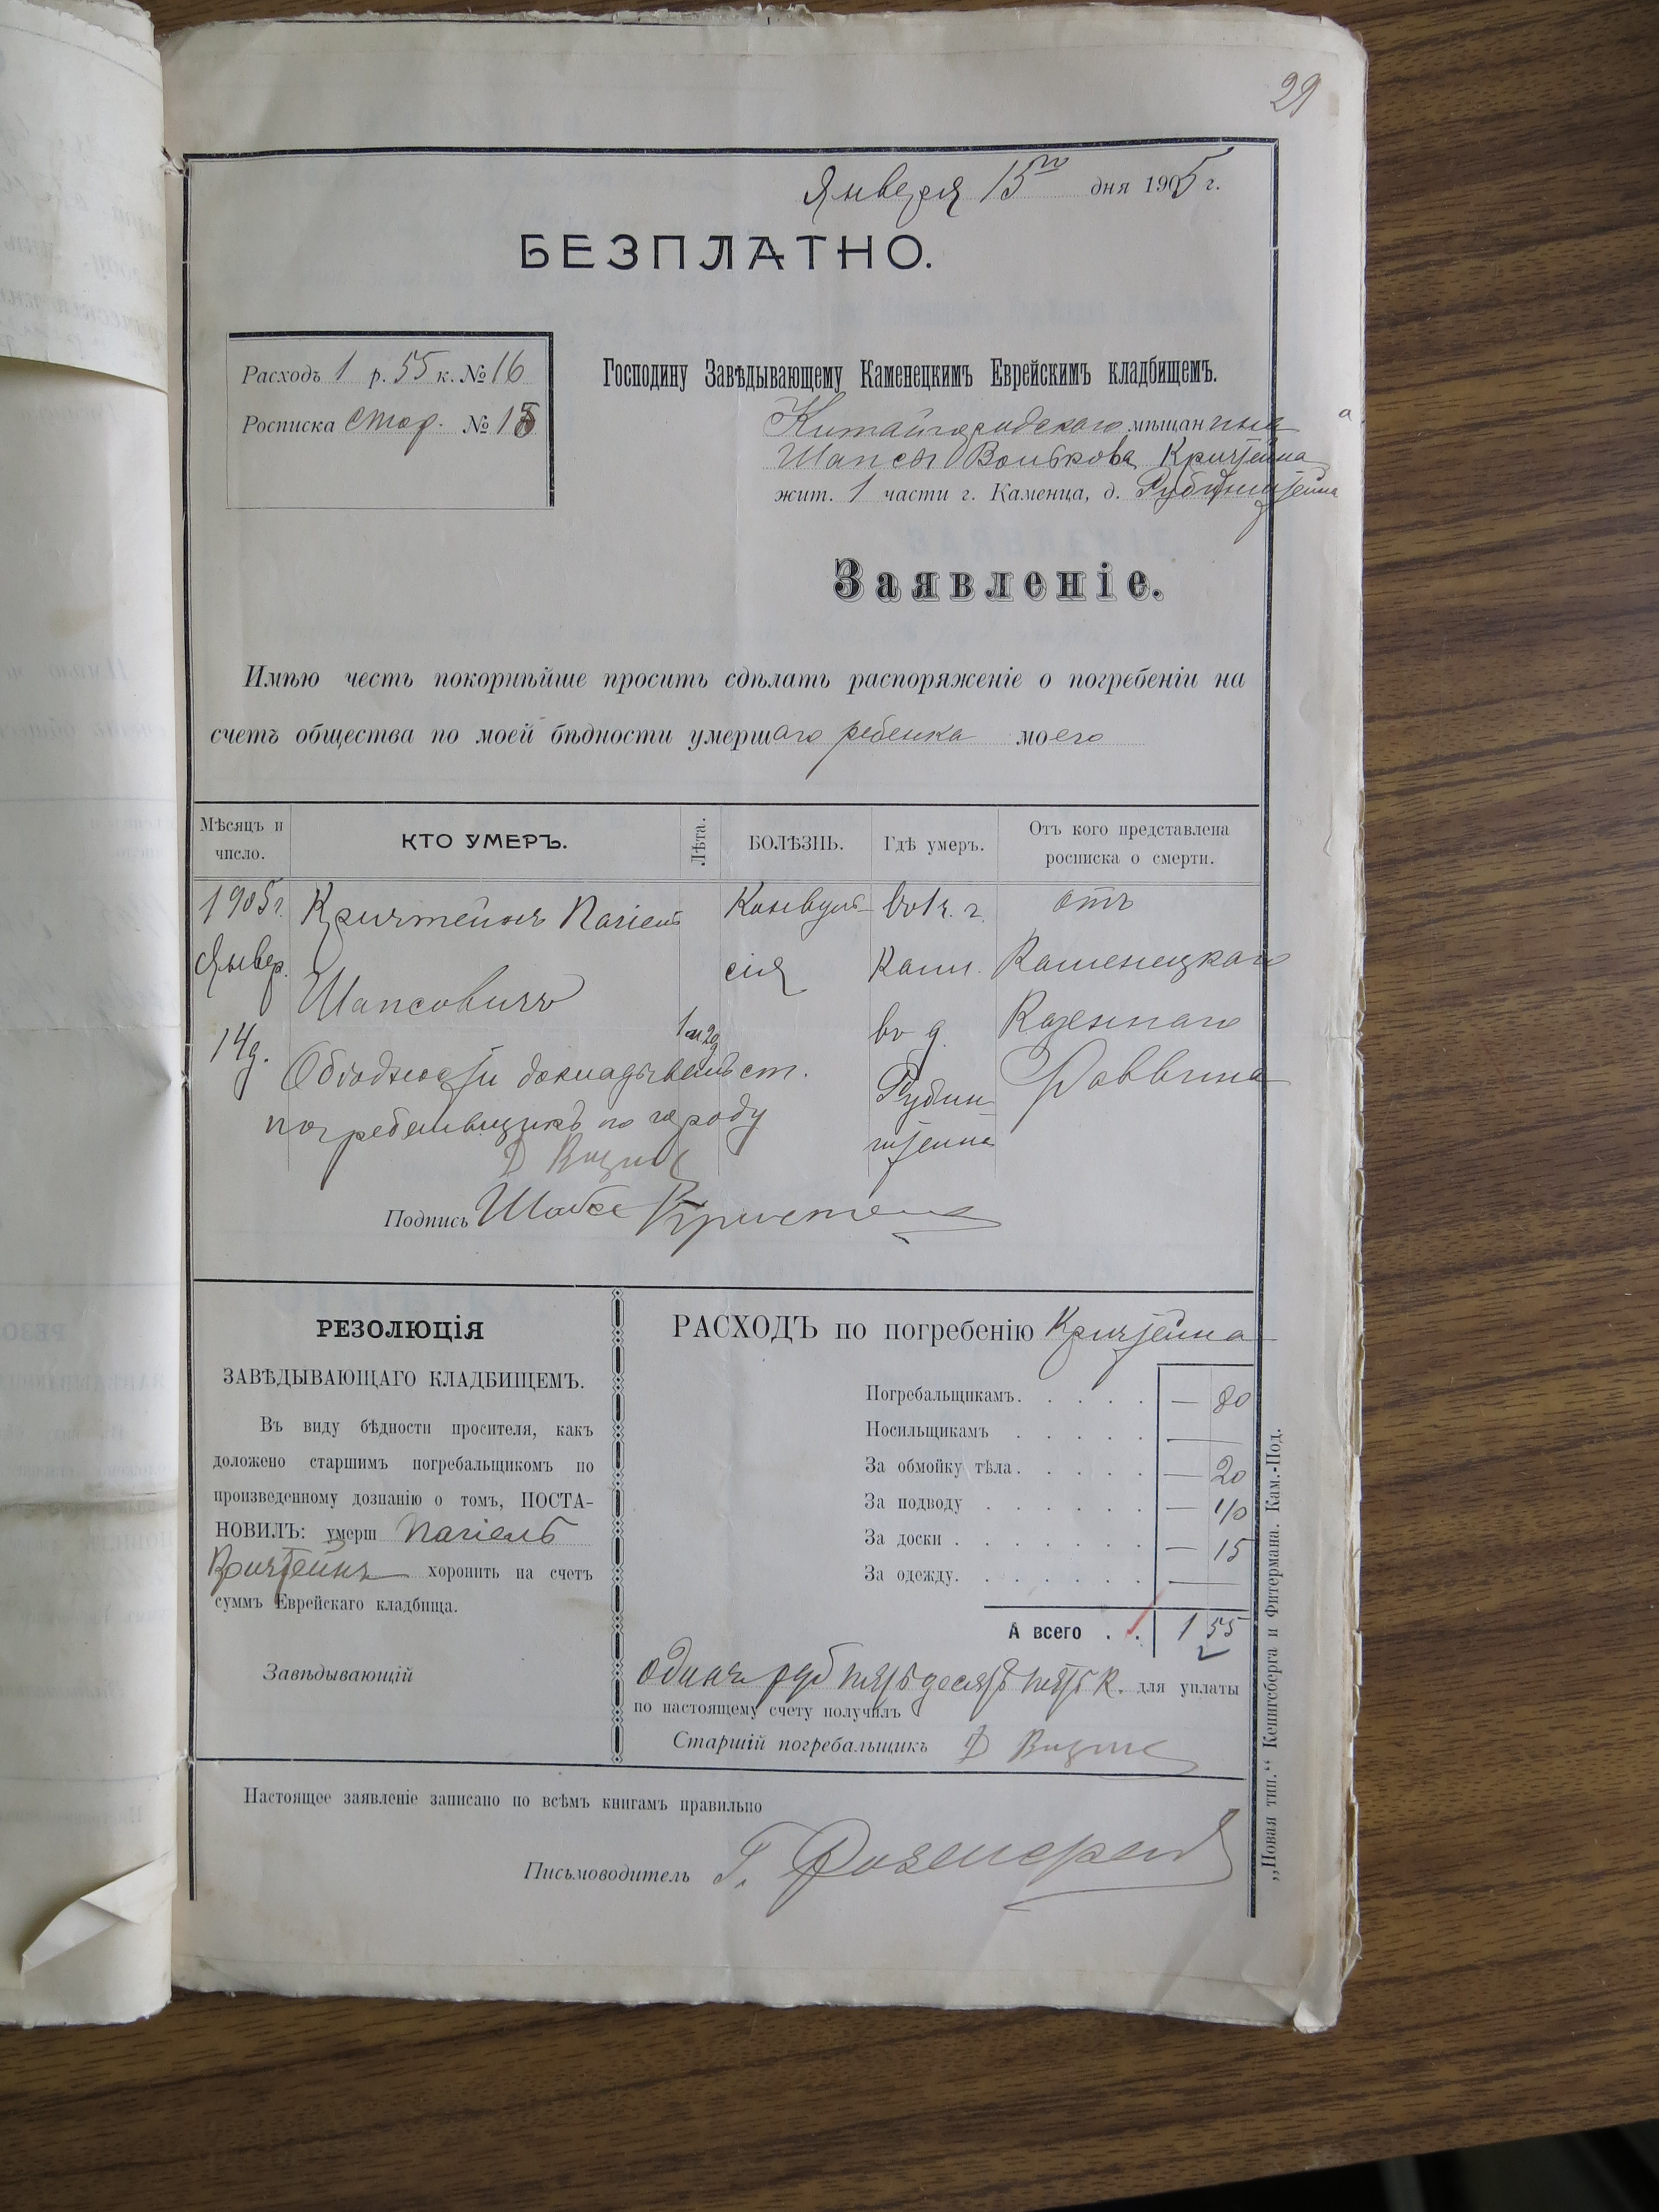 29
Января 15го дня 1905 г.
БЕЗПЛАТНО.
Расходъ 1 р. 55 к. № 16
Росписка стор. № 15
Господину Завѣдывающему Каменецкимъ Еврейскимъ кладбищемъ.
Китайгородскаго мѣщанина
Шапси Волькова Кричтейна
жит. 1 части г. Каменца, д. Рубинштейна
Заявленіе.
Имѣю честь покорнѣйше просить сдѣлать распоряженіе о погребеніи на
счетъ общества по моей бѣдности умершаго ребенка моего
Мѣсяцъ и число.
КТО УМЕРЪ.
Лѣта.
БОЛѢЗНЬ.
Гдѣ умеръ.
Отъ кого представлена росписка о смерти.
1905 г. Январ. 14 д.
Кричтейнъ Пагіель
Шапсовичъ
Конвуль-
сія
во 1 ч. г.
Кам.
въ д.
Рубин-
штейна
отъ
Каменецкаго
Казеннаго
Раввина
О бѣдности докладываетъ ст.
погребальщикъ по городу
Подпись Шабсе Кричтейн
РЕЗОЛЮЦІЯ
ЗАВѢДЫВАЮЩАГО КЛАДБИЩЕМЪ.
Въ виду бѣдности просителя, какъ
доложено старшимъ погребальщикомъ по
произведенному дознанію о томъ, ПОСТА-
НОВИЛЪ: умерш Пагіель
Кричтейнъ хоронить на счетъ
суммъ Еврейскаго кладбища.
Завѣдывающій
РАСХОДЪ по погребенію Кричтейна
Погребальщикамъ. . . . . — 80
Носильщикамъ . . . . . —
За обмойку тѣла. . . . . — 20
За подводу . . . . . . — 40
За доски . . . . . . . — 15
За одежду. . . . . . . —
А всего . . 1 55
одинъ руб пятьдесятъ пять к. для уплаты
по настоящему счету получилъ
Старшій погребальщикъ
Настоящее заявленіе записано по всѣмъ книгамъ правильно
Письмоводитель Г.
„Новая тип.“ Кенигсберга и Фитермана. Кам.-Под.